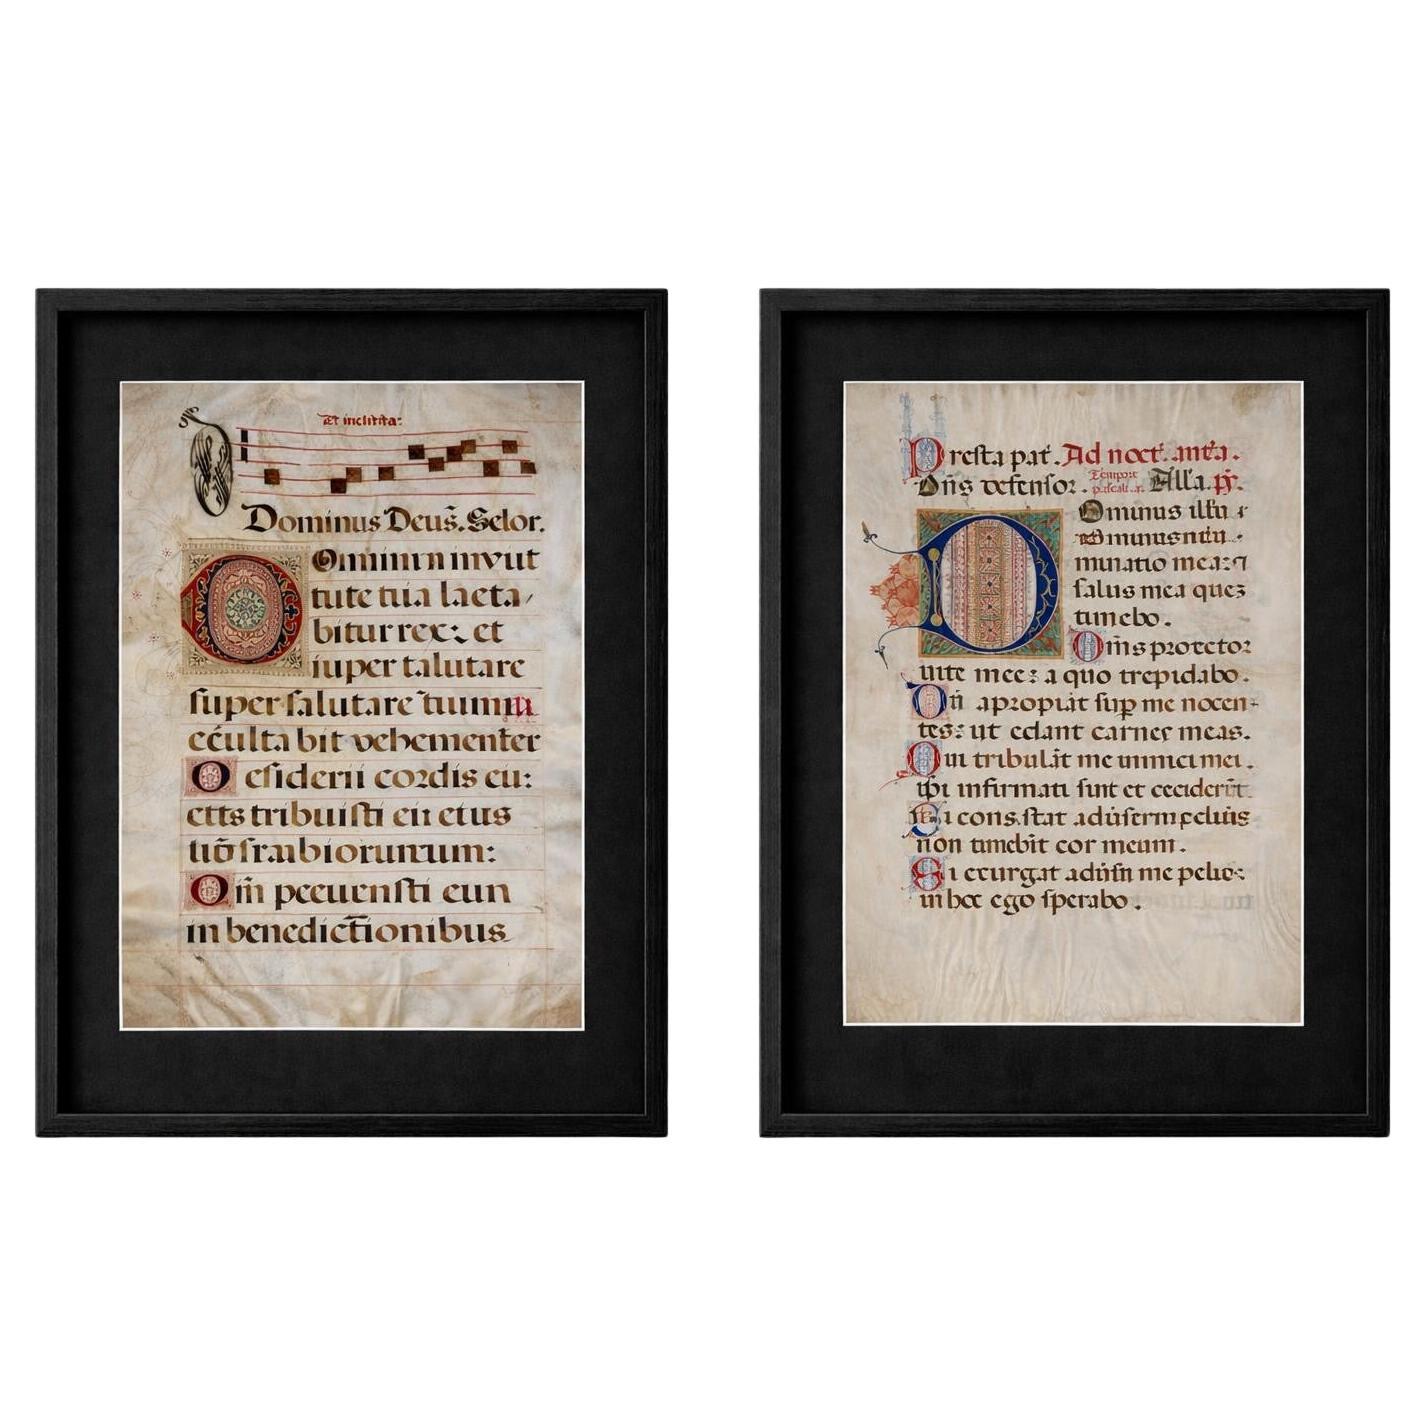 Et inclitita:
Dominus Deus̃. Selor.
Ominum in vvut
tute tua laeta
bitur rex: et
iuper talutare
super salutare tuum
cćulta bit vehementer
O esiderii cordis eu:
etts tribuisti eii etus
Om̃ peeuensti eun
in benedictionibus
Presta pat̃. Ad noct̃. anta.
Dñs defensor. Tempore pascali Alla. p̃s.
Ominus illu
Ominus
minatio mea:
salus mea quez
timebo.
Oñis protector
uite mee: a quo trepidabo.
Dñ apropiat sup̃ me nocen
tes: ut edant carnes meas.
Oui tribulãt me inimici mei.
ip̃i infirmati sunt et ceciderũt.
Si cons̃tat
non timebit cor meum.
Si exurgat me pelio:
in hoc ego sperabo.